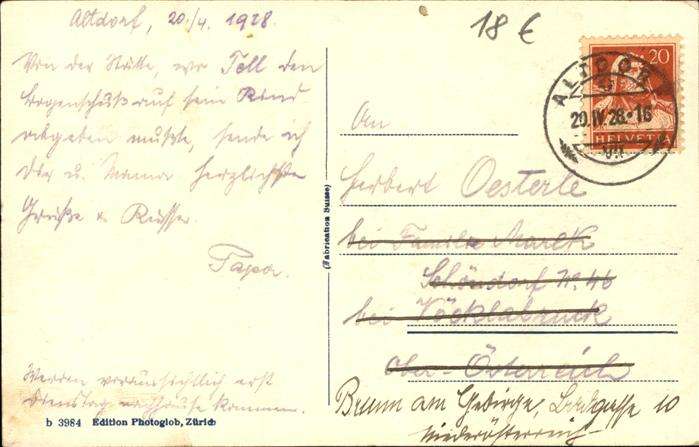 Altdorf, 20/4. 1928
Von der Stätte, wo Tell den
Bogenschuß auf sein Kind
abgeben mußte, sende ich
Dir u. Mama herzlichste
Grüße u. Küsse.
Papa.
Werden voraussichtlich erst
Dienstag nachhause kommen.
b 3984 Edition Photoglob, Zürich
(Fabrication Suisse)
18 €
20
HELVETIA
ALTDORF
20.IV.28-16
An
Herbert Oesterle
bei Familie
Schöndorf No. 46
bei Vöcklabruck
Ober-Österreich
Brunn am Gebirge, 10
Niederösterreich